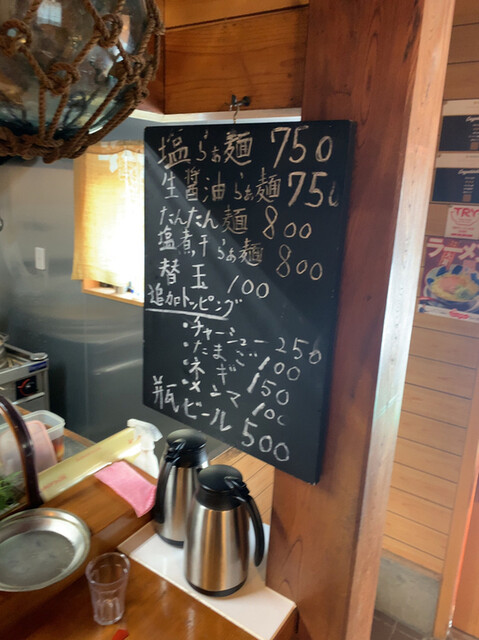 塩らぁ麺 750
生醤油らぁ麺 750
たんたん麺 800
塩煮干らぁ麺 800
替玉 100
追加トッピング
・チャーシュー 250
・たまご 100
・ネギ 150
・メンマ 100
瓶ビール 500
TRY
ラーメン